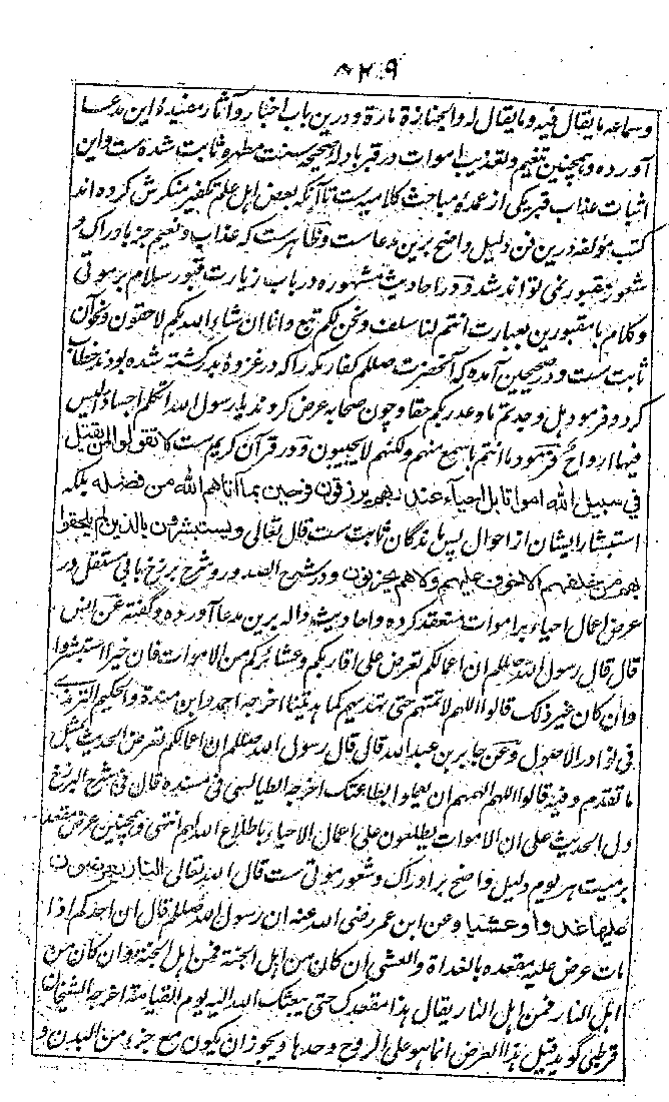 ۲۰۹
وسماعه ما یقال فیه وما یقال له والجنازة مارة ودرین باب اخبار وآثار مفیدهٔ این مدعا
آورده وهمچنین تنعیم وتعذیب اموات در قبر بادلهٔ صحیحهٔ سنت مطهره ثابت شده ست واین
اثبات عذاب قبر یکی از عمدهٔ مباحث کلامیه ست تا آنکه بعض اهل علم تکفیر منکرش کرده اند
کتب مؤلفه درین فن دلیل واضح برین مدعاست وظاهرست که عذاب ونعیم جز بادراک و
شعور مقبور نمی تواند شد ودر احادیث مشهوره در باب زیارت قبور سلام بر موتی
وکلام با مقبورین بعبارت انتم لنا سلف ونحن لکم تبع وانا ان شاء الله بکم لاحقون ونحو آن
ثابت ست ودر صحیحین آمده که آنحضرت صلعم کفار مکه را که در غزوهٔ بدر کشته شده بودند خطاب
کرد وفرمود هل وجدتم ما وعد ربکم حقا وچون صحابه عرض کردند یا رسول الله اتکلم اجسادا لیس
فیها ارواح فرمود ما انتم باسمع منهم ولکنهم لا یجیبون ودر قرآن کریم ست لا تقولوا لمن یقتل
فی سبیل الله اموات بل احیاء عند ربهم یرزقون فرحین بما آتاهم الله من فضله بلکه
استبشار ایشان از احوال پس ماندگان ثابت ست قال تعالی ویستبشرون بالذین لم یلحقوا
بهم من خلفهم الا خوف علیهم ولا هم یحزنون ودر شرح الصدور وشرح برزخ بابی مستقل در
عرض اعمال احیاء بر اموات منعقد کرده واحادیث داله برین مدعا آورده وگفته عن انس
قال قال رسول الله صلعم ان اعمالکم تعرض علی اقاربکم وعشائرکم من الاموات فان خیرا استبشروا
وان کان غیر ذلک قالوا اللهم لا تمتهم حتی تهدیهم کما هدیتنا اخرجه احمد وابن مندة والحکیم الترمذی
فی نوادر الاصول وعن جابر بن عبدالله قال قال رسول الله صلعم ان اعمالکم تعرض الحدیث بمثل
ما تقدم وفیه قالوا اللهم الهمهم ان یعملوا بطاعتک اخرجه الطیالسی فی مسنده قال فی شرح البرزخ
دل الحدیث علی ان الاموات یطلعون علی اعمال الاحیاء باطلاع الله ایاهم انتهی وهمچنین عرض مقعد
بر میت هر یوم دلیل واضح بر ادراک وشعور موتی ست قال الله تعالی النار یعرضون
علیها غدوا وعشیا وعن ابن عمر رضی الله عنه ان رسول الله صلعم قال ان احدکم اذا
مات عرض علیه مقعده بالغداة والعشی ان کان من اهل الجنة فمن اهل الجنة وان کان من
اهل النار فمن اهل النار یقال هذا مقعدک حتی یبعثک الله الیه یوم القیامة اخرجه الشیخان
قرطبی گوید قیل هذا العرض انما هو علی الروح وحدها ویجوز ان یکون مع جزء من البدن و